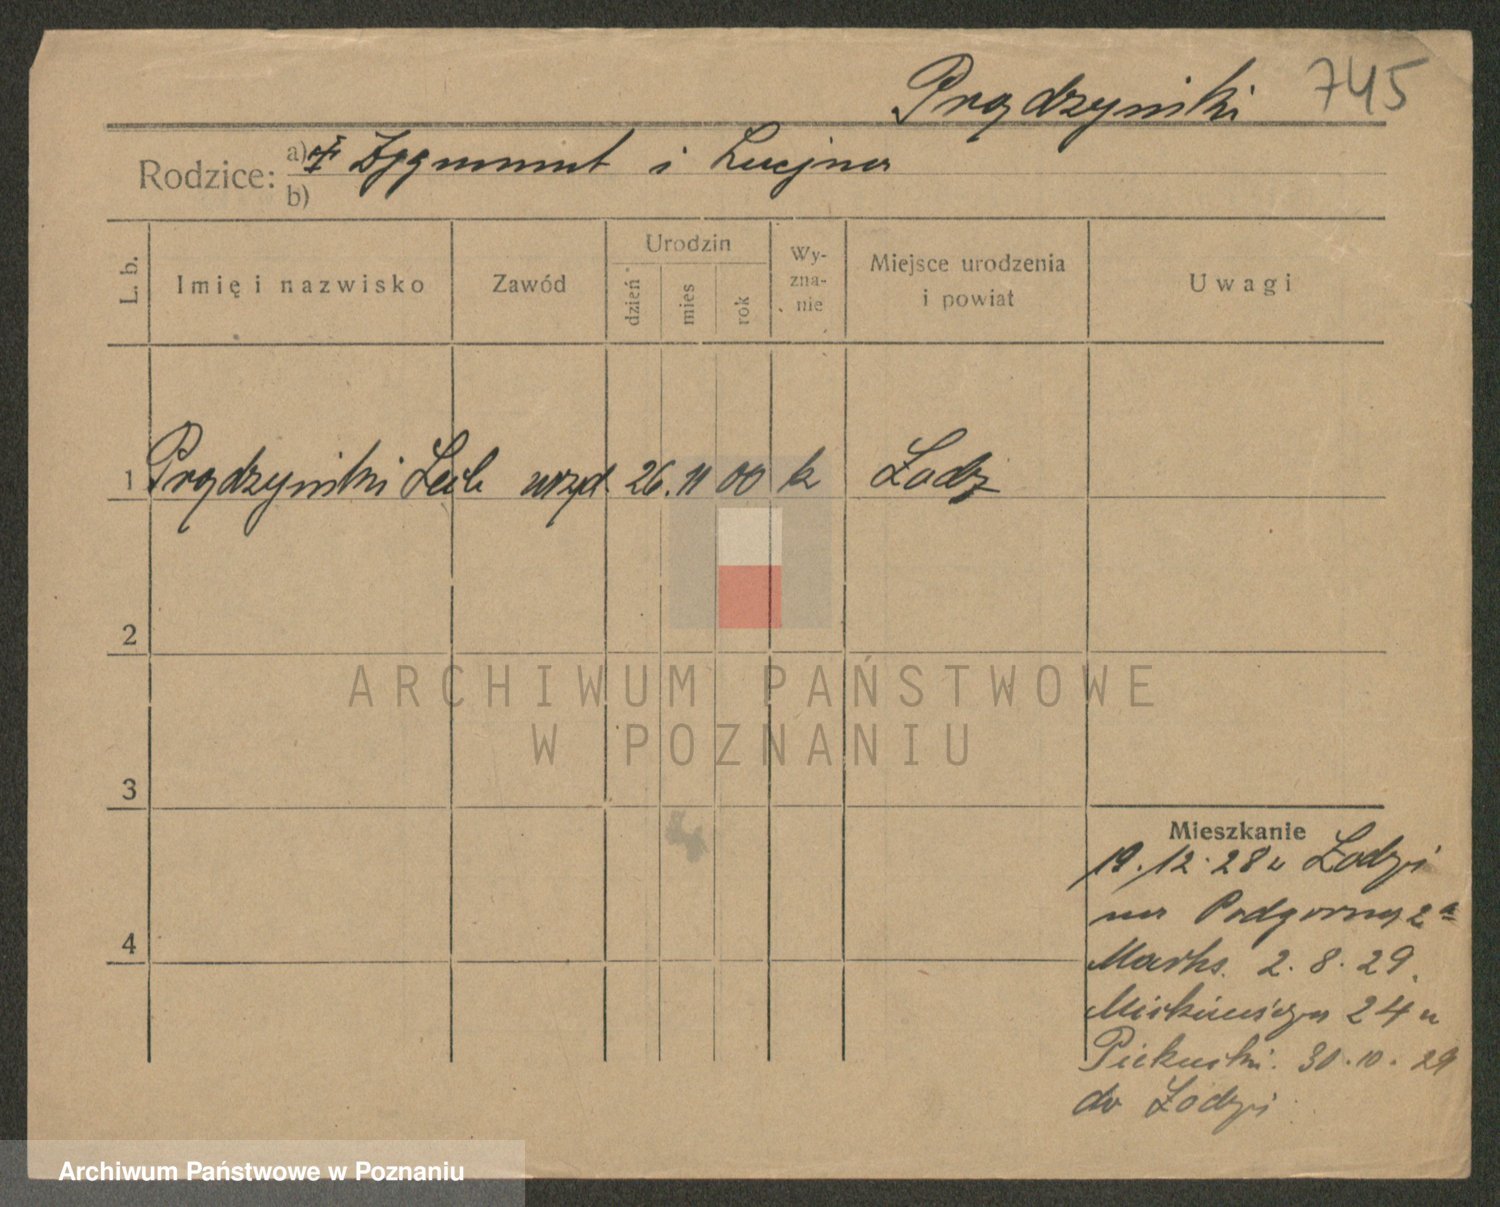 Prądzyński 745
Rodzice: a) Zygmunt i Lucjna
b)
L. b. Imię i nazwisko Zawód Urodzin dzień mies rok Wy-zna-nie Miejsce urodzenia i powiat Uwagi
1 Prądzyński Lech urzęd. 26. 11 00 k Łodz
2
ARCHIWUM PAŃSTWOWE
W POZNANIU
3
Mieszkanie
19. 12. 28 z Łodzi
na Podgorną 2a
2. 8. 29.
24 u
30. 10. 29
4
do Łodzi
Archiwum Państwowe w Poznaniu